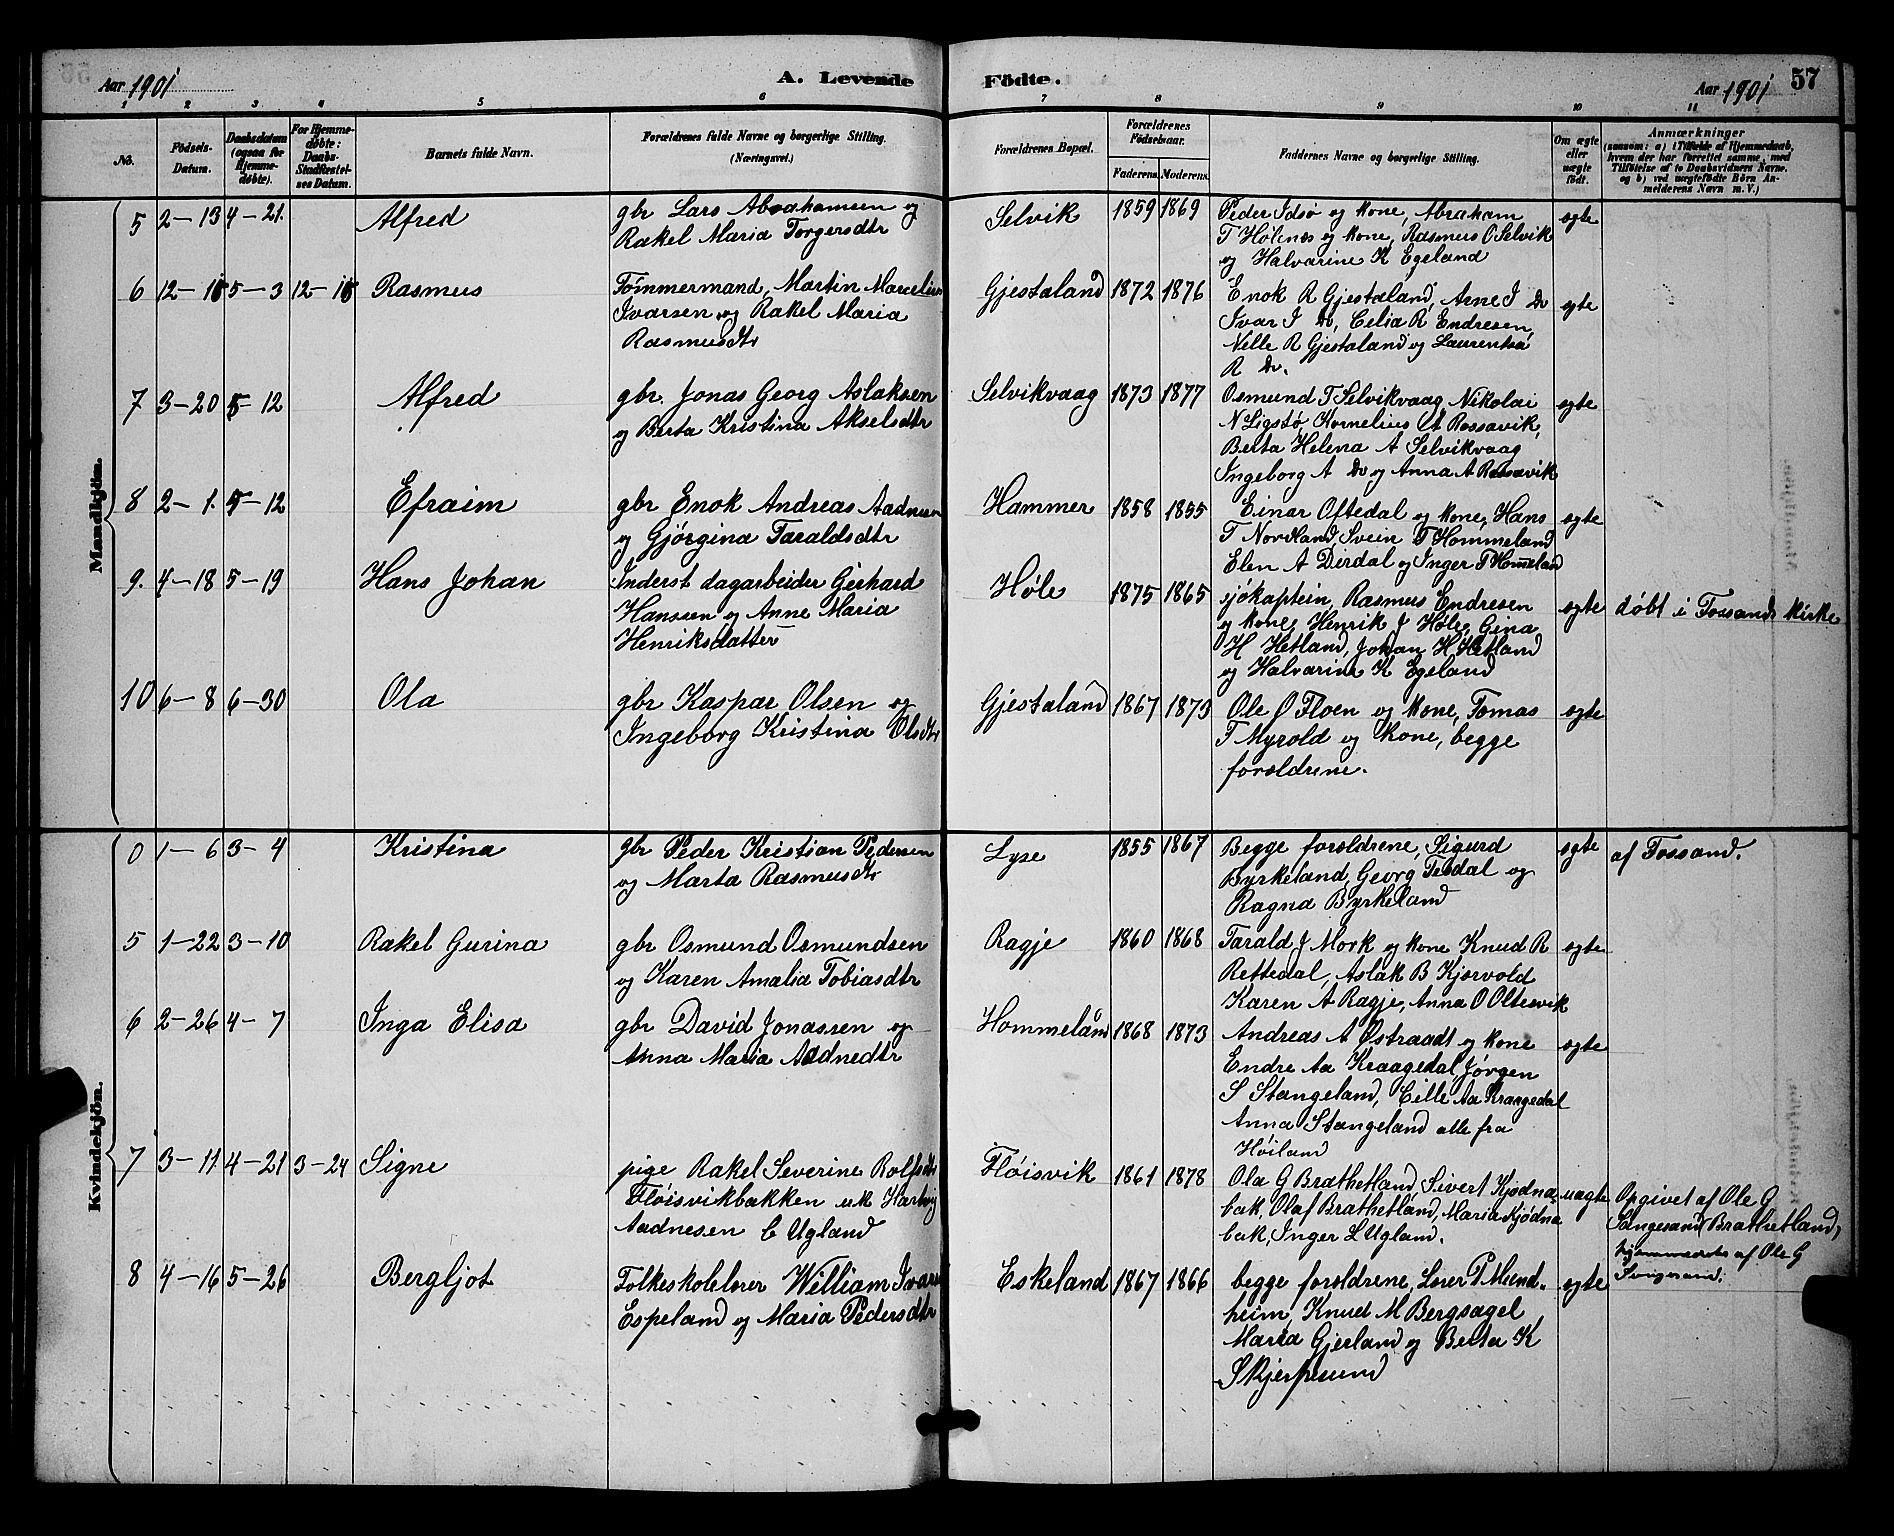 Aar 1901 A. Levende
Födte. Aar 1901 57
1 2 3 4 5 6
7 8 9 10 11
No.
Födsels-Datum.
Daabsdatum (ogsaa for Hjemmedøbte).
For Hjemmedøbte: Daabs-Stadfæstelses Datum.
Barnets fulde Navn.
Forældrenes fulde Navne og borgerlige Stilling. (Næringsvei.)
Forældrenes Bopæl.
Forældrenes Födselsaar.
Faderens. Moderens.
Faddernes Navne og borgerlig Stilling.
Om ægte eller uægte født.
Anmærkninger
(saasom: a) i Tilfælde af Hjemmedaab, hvem der har forrettet samme, med Tilföielse af to Daabsvidners Navne. og b) ved uægtefödte Börn Anmelderens Navn m. V.)
Mandkjön.
5 2-13 4-21. Alfred
gbr Lars Abrahamsen og
Rakel Maria Torgersdtr
Selvik 1859 1869
Peder Idsø og kone, Abraham
T Hølenæs og kone, Rasmus O Selvik
og Halvarine K Egeland
egte
6 12-18 5-3 12-18 Rasmus
Tømmermand, Martin Marcelius
Ivarsen og Rakel Maria
Rasmusdtr
Gjestaland 1872 1876
Enok R Gjestaland, Arne I Do
Ivar I Do, Celia R Endresen,
Nelle R Gjestaland og Laurentsa
R Do.
egte
7 3-20 5-12 Alfred
gbr. Jonas Georg Aslaksen
og Berta Kristina Akselsdtr
Selvikvaag 1873 1877
Osmund T Selvikvaag Nikolai
N Ligstø, Kornelius A Rossavik,
Berta Helena A Selvikvaag
Ingeborg A Do og Anna A Rossavik
egte
8 2-1. 5-12 Efraim
gbr Enok Andreas Aadnesen
og Gjørgina Taraldsdtr
Hammer 1858 1855
Einar Oftedal og kone, Hans
T Nordland, Svein T Hommeland
Elen A Dirdal og Inger T Hommeland
egte
9. 4-18 5-19 Hans Johan
Inderst dagarbeider Gerhard
Hanssen og Anne Maria
Henriksdatter
Høle 1875 1865
sjøkaptein, Rasmus Endresen
og kone, Henrik J Høle, Gina
H Hetland, Johan H Hetland
og Halvarine K Egeland
egte
døbt i Fossands kirke
10 6-8 6-30 Ola
gbr Kaspar Olsen og
Ingeborg Kristina Olsdtr
Gjestaland 1867 1873
Ole Ø Floen og kone, Tomas
T Myrold og kone, begge
forældrene.
egte
Kvindekjön.
0 1-6 3-4 Kristina
gbr Peder Kristian Pedersen
og Marta Rasmusdtr
Lyse 1855 1867
Begge forældrene, Sigurd
Byrkeland, Georg Tesdal og
Ragna Byrkeland
egte
af Fossand.
5 1-22 3-10 Rakel Gurina
gbr Osmund Osmundsen
og Karen Amalia Tobiasdtr
Ragje 1860 1868
Tarald J Mork og kone Knud R
Rettedal, Aslak B Kjørvold
Karen A Ragje, Anna O Oltesvik
egte
6 2-26 4-7 Inga Elisa
gbr David Jonassen og
Anna Maria Aadnedtr
Hommeland 1868 1873
Andreas A Østraadt og kone
Endre Aa Kraagedal, Jørgen
S Stangeland, Cille Aa Kraagedal
Anna Stangeland alle fra
Høiland
egte
7 3-11. 4-21 3-24 Signe
pige Rakel Severine Rolfsdtr
Fløisvikbakken uk Hartvig
Aadnesen C Ugland
Fløisvik 1861 1878
Ola G Brathetland, Sivert Kjødna-
bak, Olaf Brathetland, Maria Kjødna
bak, Inger L Ugland.
uægte
Opgivet af Ole G
Songesand (Brathetland)
hjemmedøbt af Ole G
Songesand.
8 4-16 5-26 Bergljot
Folkeskolelærer William Ivars
Espeland og Maria Pedersdtr
Eskeland 1867 1866
begge forældrene, Lærer P Mund-
heim, Knud M Bergsagel
Maria Gjerland og Berta K
Skjerpesund
egte